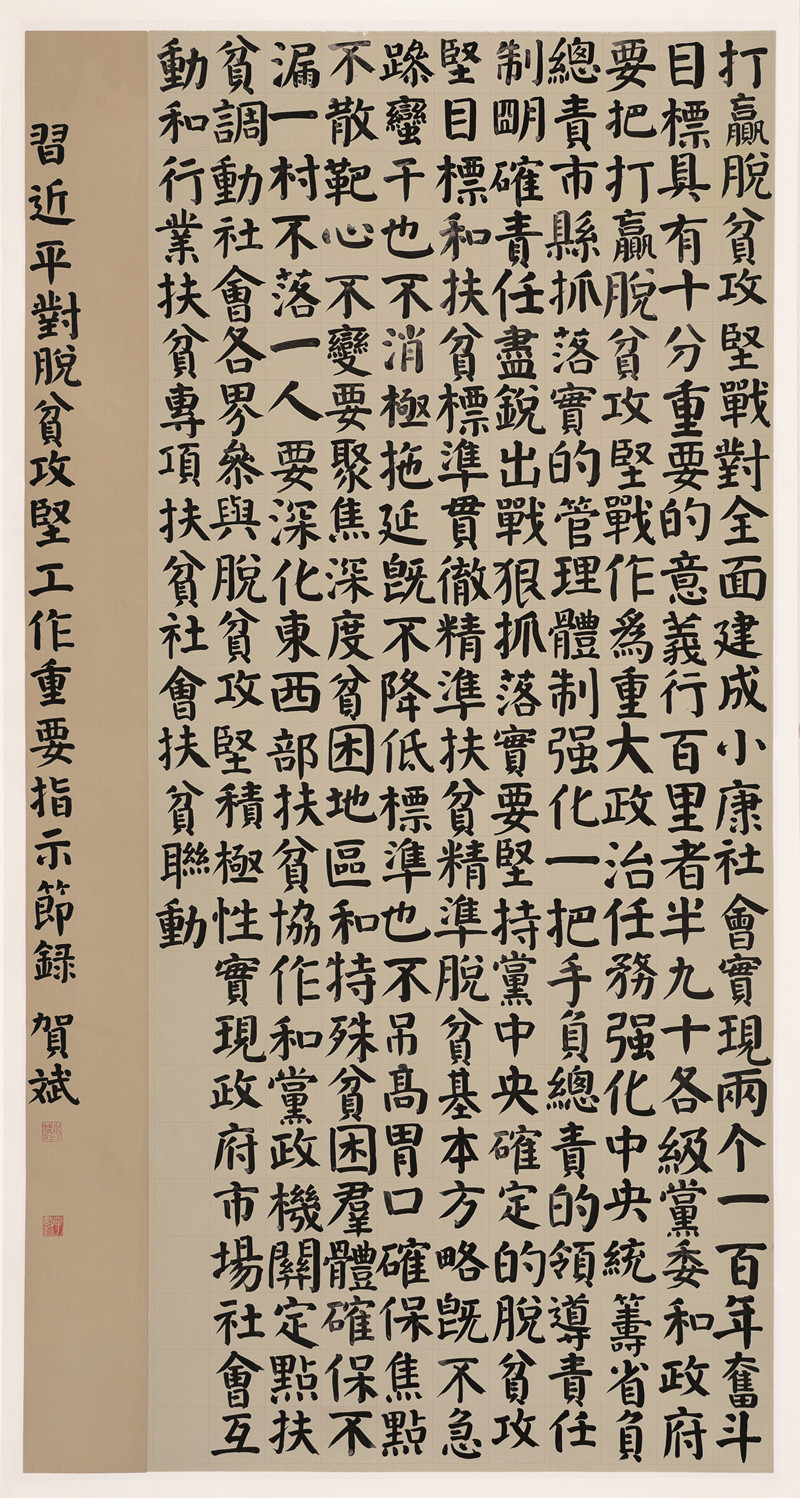 打贏脫貧攻堅戰對全面建成小康社會實現兩个一百年奮斗
目標具有十分重要的意義行百里者半九十各級黨委和政府
要把打贏脫貧攻堅戰作爲重大政治任務强化中央統籌省負
總責市縣抓落實的管理體制强化一把手負總責的領導責任
制朙確責任盡銳出戰狠抓落實要堅持黨中央確定的脫貧攻
堅目標和扶貧標準貫徹精準扶貧精準脫貧基本方略旣不急
躁蠻干也不消極拖延旣不降低標準也不吊高胃口確保焦點
不散靶心不變要聚焦深度貧困地區和特殊貧困羣體確保不
漏一村不落一人要深化東西部扶貧協作和黨政機關定點扶
貧調動社會各界叅與脫貧攻堅積極性實現政府市場社會互
動和行業扶貧專項扶貧社會扶貧聯動
習近平對脫貧攻堅工作重要指示節録 賀斌